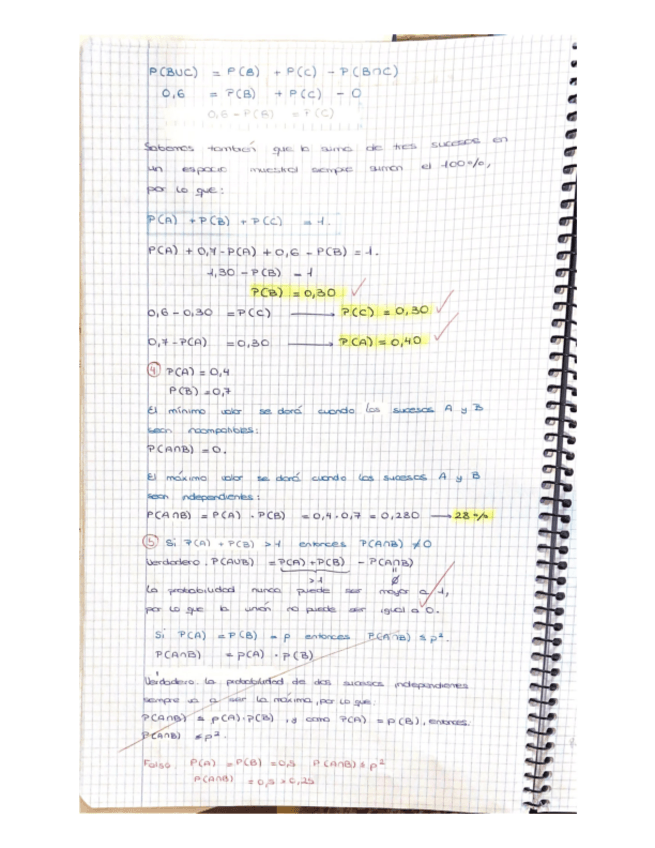 P(B∪C) = P(B) + P(C) - P(B∩C)
0,6 = P(B) + P(C) - 0
0,6 - P(B) = P(C)
Sabemos también que la suma de tres sucesos en
un espacio muestral siempre suman el 100%,
por lo que:
P(A) + P(B) + P(C) = 1.
P(A) + 0,7 - P(A) + 0,6 - P(B) = 1.
1,30 - P(B) = 1
P(B) = 0,30
0,6 - 0,30 = P(C) → P(C) = 0,30
0,7 - P(A) = 0,30 → P(A) = 0,40
4 P(A) = 0,4
P(B) = 0,7
El mínimo valor se dará cuando los sucesos A y B
sean incompatibles:
P(A∩B) = 0.
El máximo valor se dará cuando los sucesos A y B
sean independientes:
P(A∩B) = P(A) · P(B) = 0,4 · 0,7 = 0,280 → 28%
5 Si P(A) + P(B) > 1 entonces P(A∩B) ≠ 0
Verdadero. P(A∪B) = P(A) + P(B) - P(A∩B)
>1 = ∅
La probabilidad nunca puede ser mayor a 1,
por lo que la unión no puede ser igual a 0.
Si P(A) = P(B) = p entonces P(A∩B) ≤ p².
P(A∩B) = P(A) · P(B)
Verdadero. la probabilidad de dos sucesos independientes
siempre va a ser la máxima, por lo que:
P(A∩B) ≤ P(A) · P(B), y como P(A) = P(B), entonces.
P(A∩B) ≤ p².
Falso. P(A) = P(B) = 0,5 P(A∩B) ≤ p²
P(A∩B) = 0,5 > 0,25